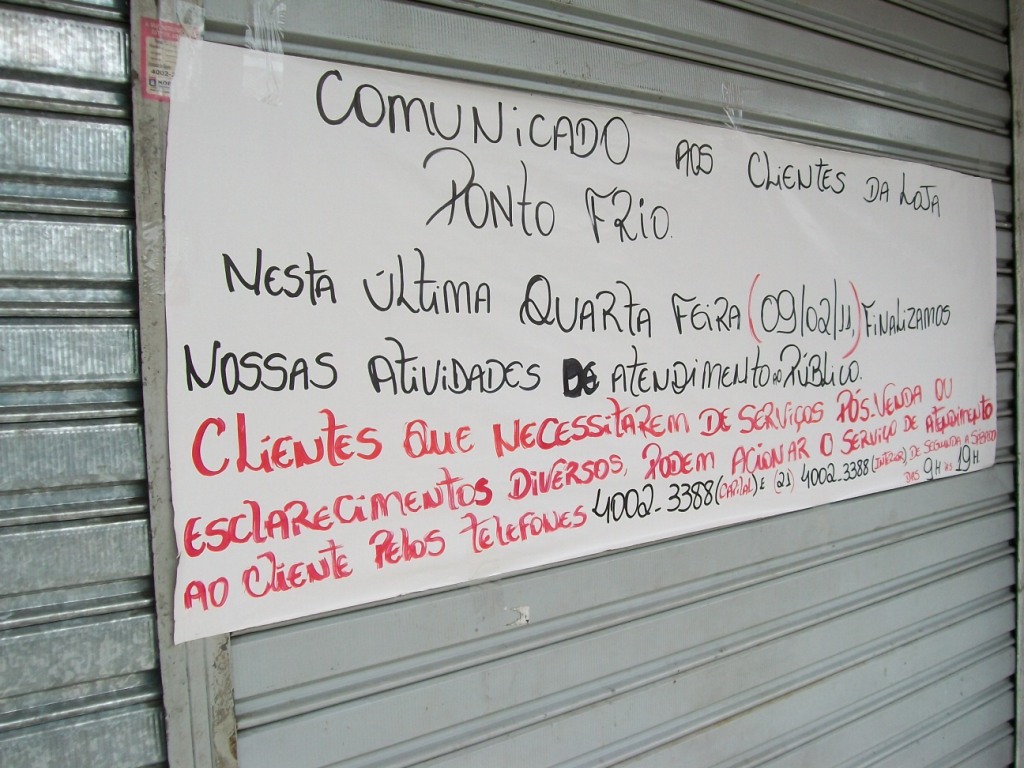 COMUNICADO AOS CLIENTES DA LOJA
PONTO FRIO.
NESTA ÚLTIMA QUARTA FEIRA (09/02/11) FINALIZAMOS
NOSSAS ATIVIDADES DE ATENDIMENTO AO PÚBLICO.
CLIENTES QUE NECESSITAREM DE SERVIÇOS PÓS-VENDA OU
ESCLARECIMENTOS DIVERSOS, PODEM ACIONAR O SERVIÇO DE ATENDIMENTO
AO CLIENTE PELOS TELEFONES 4002-3388 (CAPITAL) E (21) 4002.3388 (INTERIOR) DE SEGUNDA A SÁBADO
DAS 9H ÀS 19H